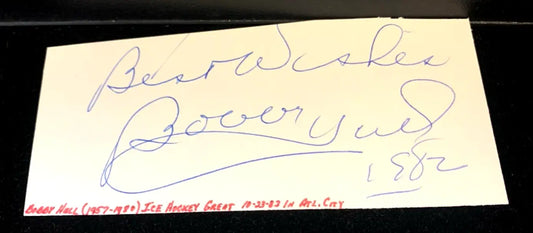 Best Wishes
Bobby Hull
1982
Bobby Hull (1957-1980) Ice Hockey Great 10-23-82 in Atl. City